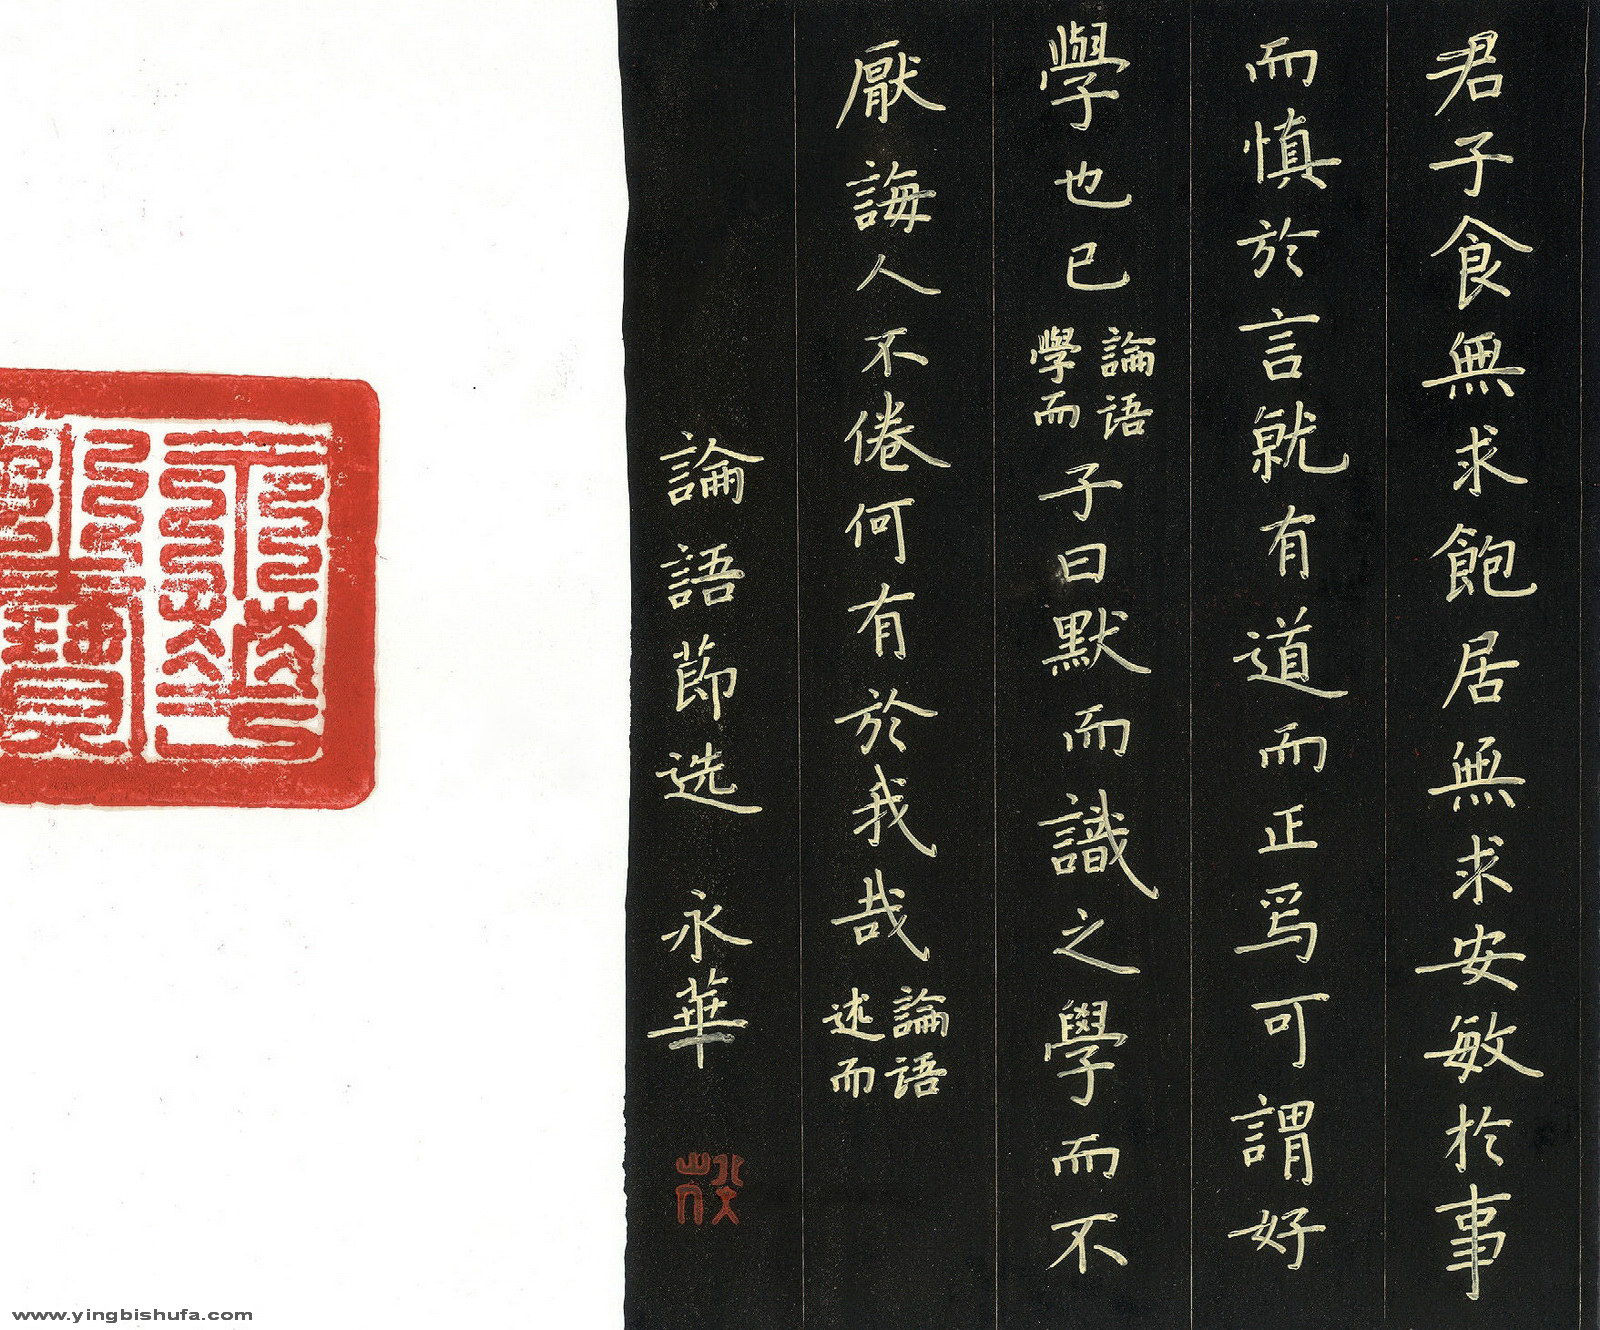 君子食無求飽居無求安敏於事
而慎於言就有道而正焉可謂好
學也已
論语
學而
子曰默而識之學而不
厭誨人不倦何有於我哉
論语
述而
論語節选 永華
www.yingbishufa.com